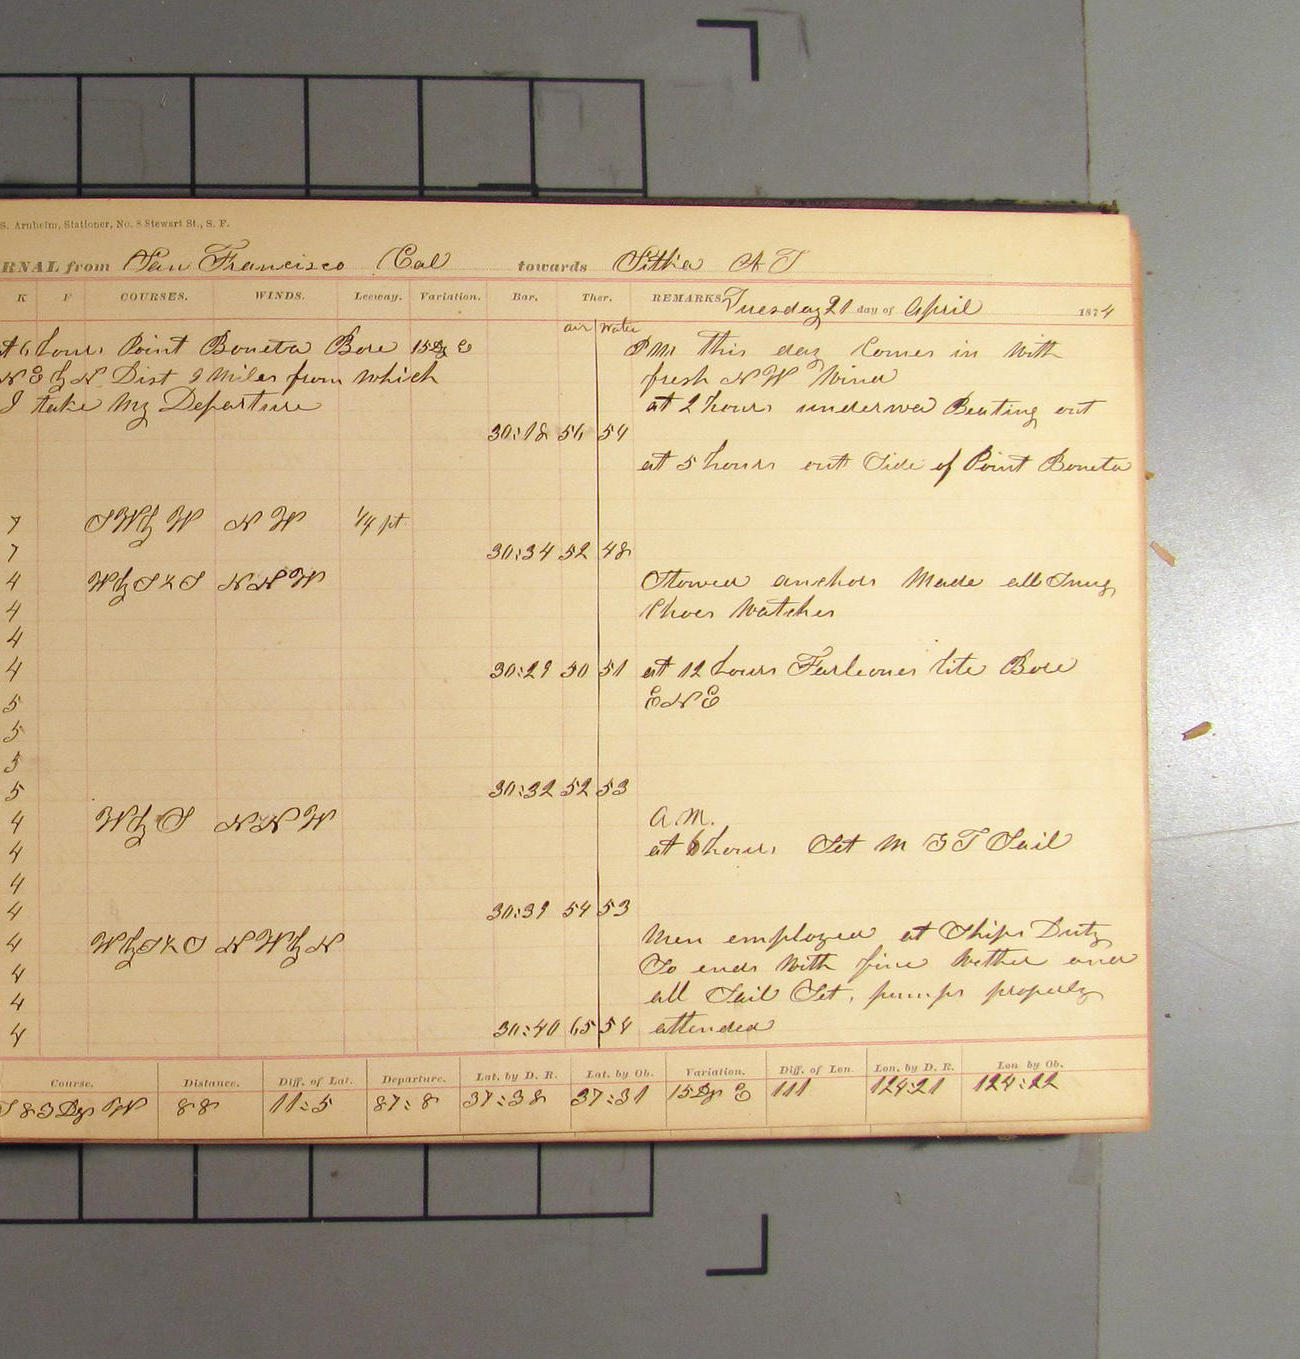 S. Arnheim, Stationer, No. 8 Stewart St., S. F.
RNAL from San Francisco Cal towards Sitka A T
K F COURSES. WINDS. Leeway. Variation. Bar. Ther. REMARKS Tuesday 21 day of April 1874
air water
at 6 hours Point Boneta Bore 15 Dg E P M this day Comes in With
N E by N Dist 9 Miles from which fresh N W Wind
I take My Departure at 2 hours underwa Beating out
30:18 56 54
at 5 hours out Side of Point Boneta
7 S W by W N W 1/4 pt
7 30:34 52 48
4 W by S 1/2 S N N W Stowed anchors Made all Snug
4 Choes Watches
4
4 30:29 50 51 at 12 hours Farleones lite Bore
5 E N E
5
5
5 30:32 52 53
4 W by S N N W A. M.
4 at 6 hours Set M G T Sail
4
4 30:39 54 53
4 W by S 1/2 S N W by N Men employed at Ships Duty
4 So ends With fine Wether and
4 all Sail Set, pumps properly
4 30:40 65 54 attended
Course. Distance. Diff. of Lat. Departure. Lat. by D. R. Lat. by Ob. Variation. Diff. of Lon. Lon. by D. R. Lon by Ob.
S 83 Dgs W 88 11:5 87:8 37:38 37:31 15 Dgs E 111 124:21 124:22